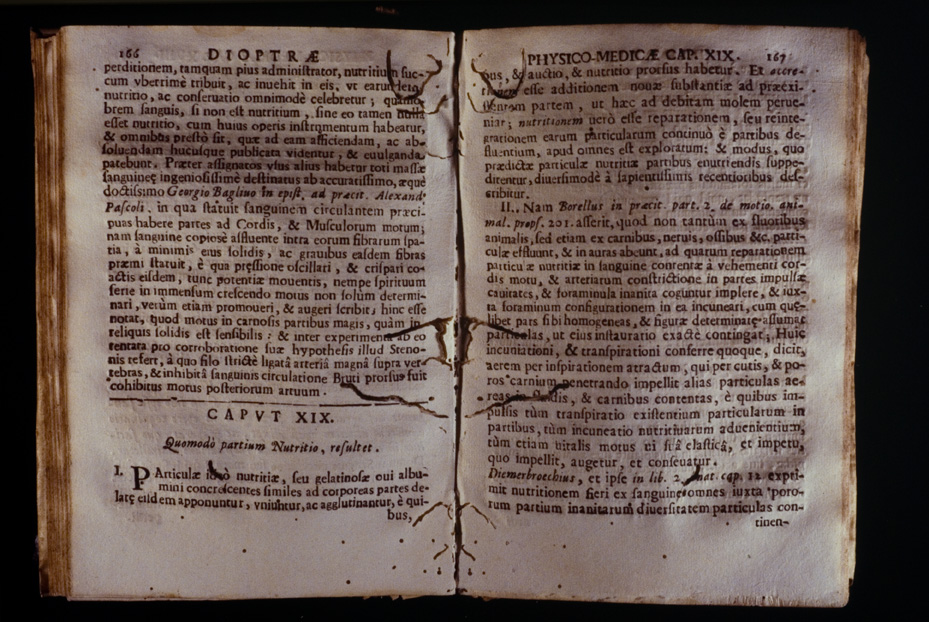 166 DIOPTRÆ
perditionem, tamquam pius administrator, nutritium suc-
cum vberrimè tribuit, ac inuehit in eis, vt earum
nutritio, ac conseruatio omnimodè celebretur;
brem sanguis, si non est nutritium, sine eo tamen nulla
esset nutritio, cum huius operis instrumentum habeatur,
& omnibus prestò sit, quæ ad eam afficiendam, ac ab-
soluendam hucusque publicata videntur, & euulganda
patebunt. Præter assignatos vsus alius habetur toti massæ
sanguineę ingeniosissimè destinatus ab accuratissimo, æquè
doctissimo Georgio Bagliuo in epist. ad præcit. Alexand.
Pascoli. in qua statuit sanguinem circulantem præci-
puas habere partes ad Cordis, & Musculorum motum;
nam sanguine copiosè affluente intra eorum fibrarum spa-
tia, à minimis eius solidis, ac grauibus easdem fibras
præmi statuit, è qua pręssione oscillari, & crispari co-
actis eisdem, tunc potentiæ mouentis, nempe spirituum
serie in immensum crescendo motus non solùm determi-
nari, verùm etiam promoueri, & augeri scribit; hinc esse
notat, quod motus in carnosis partibus magis, quàm in
reliquis solidis est sensibilis: & inter experimenta ab eo
tentata pro corroboratione suæ hypothesis illud Steno-
nis refert, à quo filo strictè ligatâ arteriâ magnâ supra ver-
tebras, & inhibitâ sanguinis circulatione Bruti prorsus fuit
cohibitus motus posteriorum artuum.
CAPVT XIX.
Quomodò partium Nutritio, resultet.
I. PArticulæ nutritiæ, seu gelatinosæ oui albu-
mini concrescentes similes ad corporeas partes de-
latę eisdem apponuntur, vniuntur, ac agglutinantur, è qui-
bus,
PHYSICO-MEDICÆ CAP. XIX. 167
bus, & auctio, & nutritio prorsus habetur. Et accre-
tionem esse additionem nouæ substantiæ ad præexi-
stentem partem, ut hæc ad debitam molem perue-
niar; nutritionem uerò esse reparationem, seu reinte-
grationem earum particularum continuò è partibus de-
fluentium, apud omnes est exploratum; & modus, quo
prædictæ particulæ nutritiæ partibus enutriendis suppe-
ditentur, diuersimodè à sapientissimis recentioribus des-
cribitur.
II. Nam Borellus in præcit. part. 2. de motio. ani-
mal. props. 201. asserit, quod non tantùm ex fluoribus
animalis, sed etiam ex carnibus, neruis, ossibus &c. parti-
culæ effluunt, & in auras abeunt, ad quarum reparationem
particulæ nutritiæ in sanguine contentæ à vehementi cor-
dis motu, & arteriarum constrictione in partes impulsæ
cauitates, & foraminula inanita coguntur implere, & iux-
ta foraminum configurationem in ea incuneari, cum quę-
libet pars sibi homogeneas, & figuræ determinatę assumat
particulas, ut eius instauratio exactè contingat; Huic
incuniationi, & transpirationi conferre quoque, dicit,
aerem per inspirationem atractum, qui per cutis, & po-
ros carnium penetrando impellit alias particulas ae-
reas in fluidis, & carnibus contentas, è quibus im-
pulsis tùm transpiratio existentium particularum in
partibus, tùm incuneatio nutritiuarum aduenientium,
tùm etiam uitalis motus ei elastica, et impetu,
quo impellit, augetur, et conseuatur.
Diemerbroechius, et ipse in lib. 2. Anat. cap. 12. expri-
mit nutritionem fieri ex sanguine omnes iuxta poro-
rum partium inanitarum diuersitatem particulas con-
tinen-